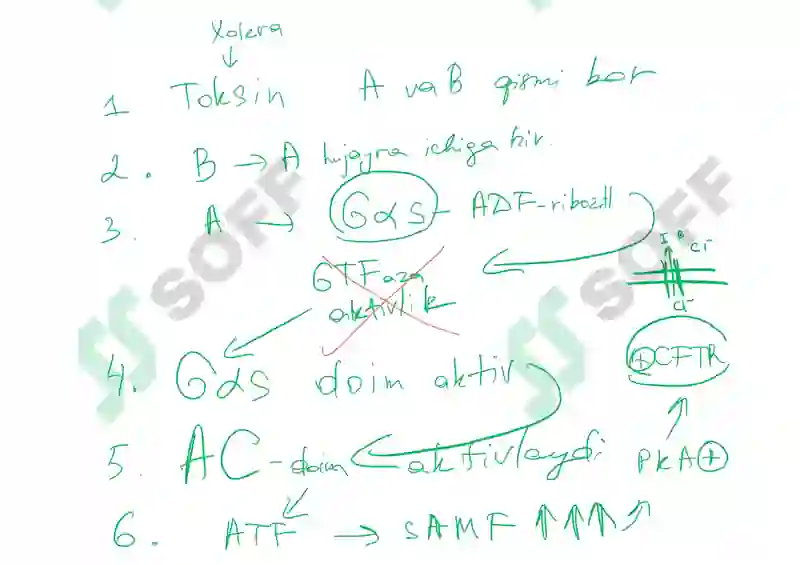 Xolera
↓
1 Toksin A va B qismi bor
2. B → A hujayra ichiga kir.
3. A → Gαs - ADF-ribozil
GTFaza
aktivlik
I B Cl⁻
Cl⁻
4. Gαs doim aktiv
⊕CFTR
5. AC - doim aktivlaydi PKA⊕
6. ATF → sAMF ↑↑↑
SOFF
SOFF